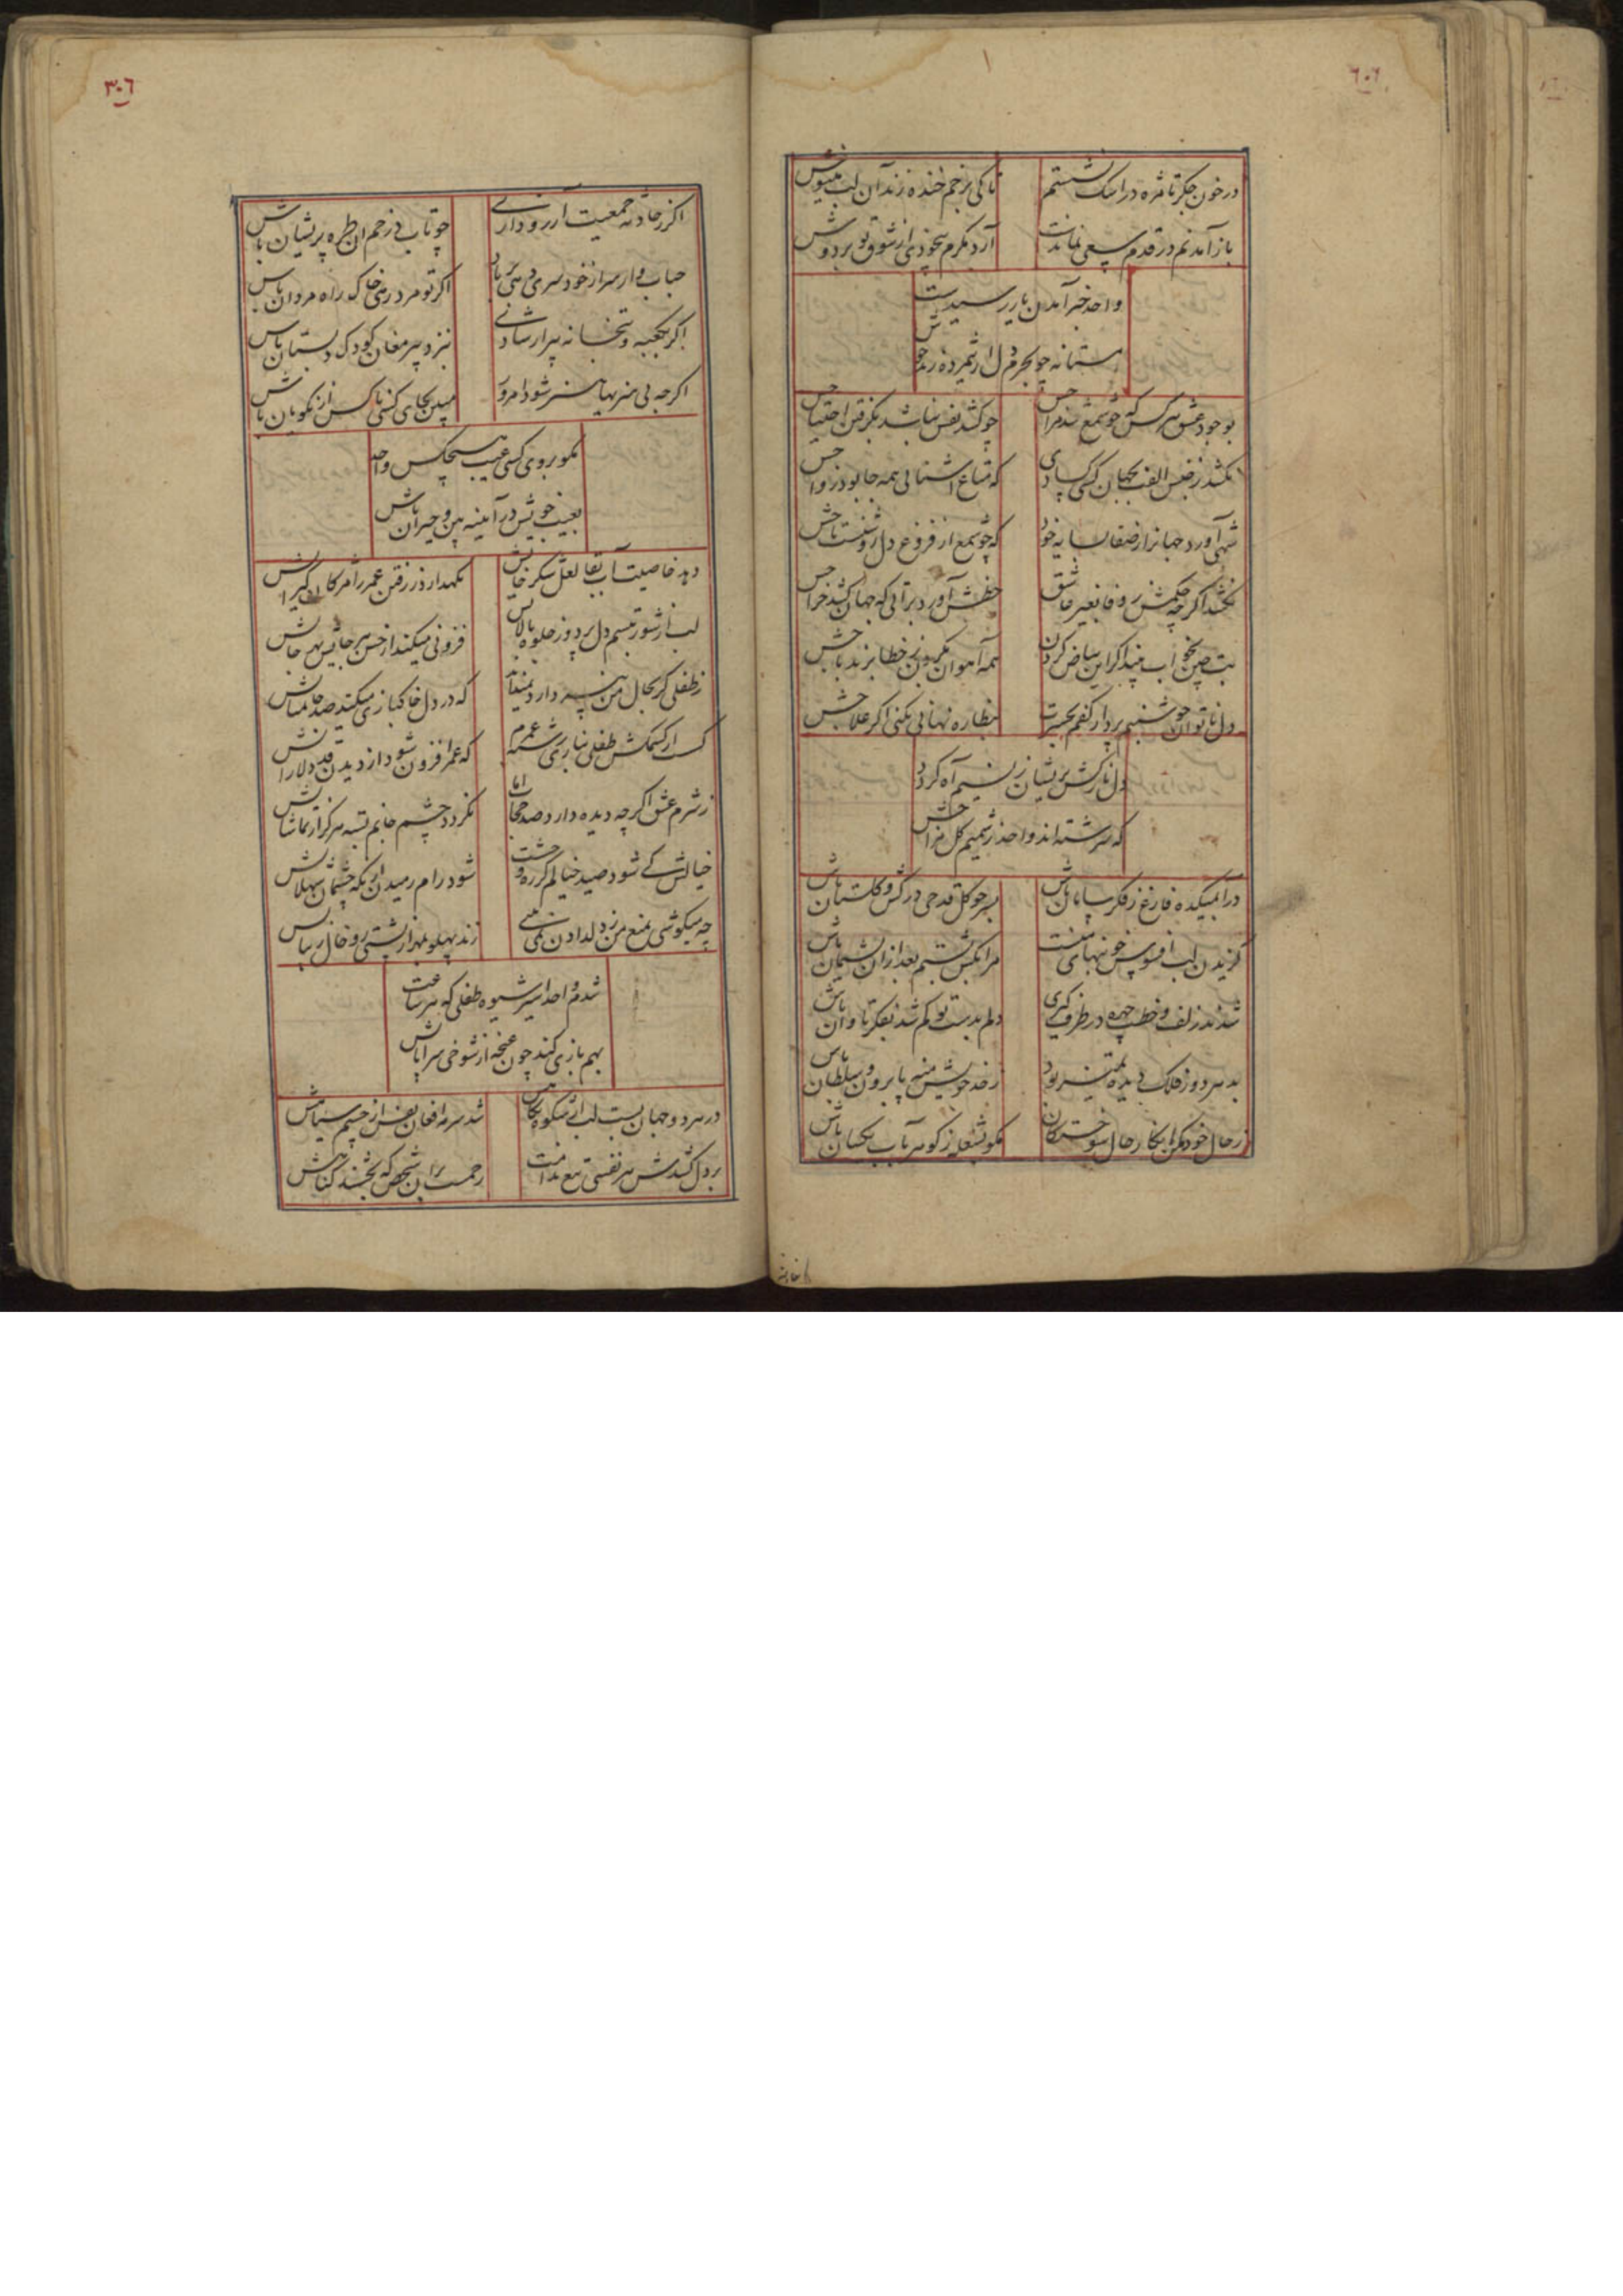 در خون جگر تا مژه در اشک نشستم
تا کی بزخم خنده زند آن لب مینوش
باز آمدنم در قدم سعی نماندت
آرد مگرم بیخودی از شوق تو بر دوش
واحد خبر آمدن یار رسیدست
مستانه چو
بوجود عشق سرکش که چو شمع شد مرا
چو کشد نفس نباشد بگرفتن احتیاجش
نکشد ز جنس الفت بجهان کسی کسادی
که متاع آشنائی همه جا بود رواجش
شهی آورد جهانرا ز صفا بسایه خود
که چو شمع از فروغ دل روشنست تاجش
نکشد اگر چه حکمش رو فا بغیر عاشق
خطش آورد براتی که جهان کشد خراجش
بت چین بخواب بیند اگر این بیاض گردن
همه آهوان
دل ناتوان چو شبنم بردار کفم بحیرت
بنظاره نهانی نکنی اگر علاجش
دل نازکش پریشان ز نسیم آه گردد
که سرشته‌اند واحد ز شمیم گل مزاجش
درا بمیکده فارغ ز فکر سامان باش
بسر چو گل قدحی در کش و گلستان باش
گزیدن لب افسوس خونبهای منست
مرا بکش بستم بعد از آن پشیمان باش
شدند زلف و خط و چهره در طرف گیری
دلم بدست تو گم شد بفکر تاوان باش
بد هر دو ز فلک
ز حد خویش منه پا برون و سلطان باش
ز حال خود
مگو
اگر ز حادثه جمعیت آرزو داری
چو تاب در خم آن طره پریشان باش
حباب وار سر از خود سری دهی بر باد
اگر تو مرد رهی خاک راه مردان باش
اگر بکعبه و بتخانه
بنزد پیر مغان کودک دبستان باش
اگر چه بی هنریها هنر شود امروز
مبین بجای کسی ناکس از نکویان باش
مگو بروی کسی عیب هیچکس واحد
بعیب خویش در آیینه بین و حیران باش
دهد خاصیت آب بقا لعل شکرخایش
نگهدارد ز رفتن عمر را مژگان گیرایش
لب از شور تبسم دل برد وز جلوه بالایش
فزونی میکند از حسن هر جائیش هر جایش
ز طفلی گر بحال من نپردازد نمیداند
که در دل خاکبازی میکند صد جا تمنایش
گسست از کشمکش طفلی بباری رشته عمرم
که عمر افزون شود از دیدن قد دلارایش
ز شرم عشق اگر چه دیده دارد صد حجاب اما
نگردد چشم جانم بسته هرگز از تماشایش
خیالش کی شود صید خیالم گر ره وحشت
شود رام رمیدن از نگه چشمان شهلایش
چه میکوشی بمنع من ز دل دادن نمی‌بینی
زند پهلو بهزار پشتی رو خال زیبایش
شدم واحد اسیر شیوه طفلی که هر ساعت
بهم بازی کند چون غنچه از شوخی سراپایش
در هر دو جهان بست لب از شکوه نگاهش
شد سرمه افغان نفس از چشم سیاهش
بر دل کشدش هر نفسی تیغ ندامت
رحمست بر آن شخص که بخشند گناهش
۳۰۶